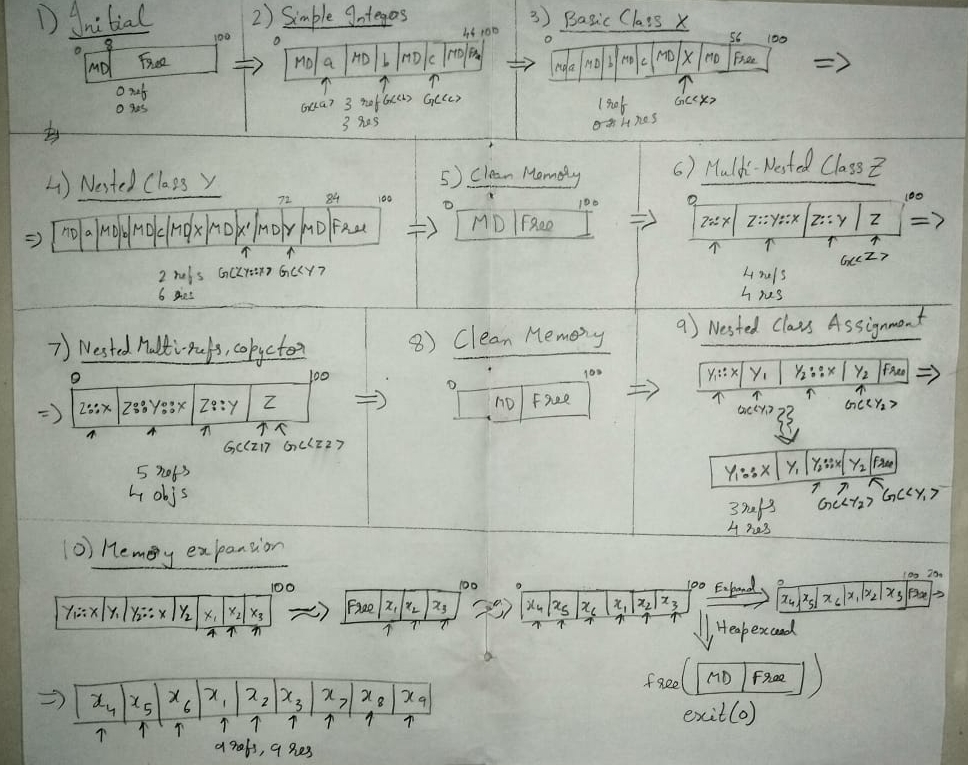 1) Initial
0 8 100
MD Free
0 ref
0 res
2) Simple Integos
0 46 100
MD a MD b MD c MD Free
GC<a> 3 ref GC<b> GC<c>
3 res
3) Basic Class X
0 56 100
MD a MD b MD c MD X MD Free
1 ref GC<X>
4 res
4) Nested Class Y
72 84 100
MD a MD b MD c MD X MD X' MD Y MD Free
2 refs GC<Y::X> GC<Y>
6 res
5) Clean Memory
0 100
MD Free
6) Multi-Nested Class Z
0 100
Z::X Z::Y::X Z::Y Z
GC<Z>
4 refs
4 res
7) Nested Multi-refs, copyctor
0 100
Z::X Z::Y::X Z::Y Z
GC<Z1> GC<Z2>
5 refs
4 objs
8) Clean Memory
0 100
MD Free
9) Nested Class Assignment
Y1::X Y1 Y2::X Y2 Free
GC<Y1> GC<Y2>
Y1::X Y1 Y2::X Y2 Free
3 refs GC<Y2> GC<Y1>
4 res
10) Memory expansion
100
Y1::X Y1 Y2::X Y2 x1 x2 x3
100
Free x1 x2 x3
0 100
x4 x5 x6 x1 x2 x3
Expand
0 100 200
x4 x5 x6 x1 x2 x3 Free
Heap exceed
free( MD Free )
exit(0)
x4 x5 x6 x1 x2 x3 x7 x8 x9
9 refs, 9 res